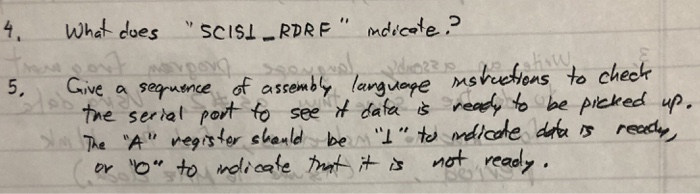 4. What does "SCIS1_RDRF" indicate?
5. Give a sequence of assembly language instructions to check
the serial port to see if data is ready to be picked up.
The "A" register should be "1" to indicate data is ready,
or "0" to indicate that it is not ready.